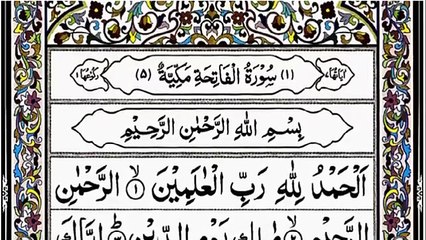 اٰيَاتُهَا ٧ (١) سُوْرَةُ الْفَاتِحَةِ مَكِّيَّةٌ (٥) رُكُوْعُهَا ١
بِسْمِ اللهِ الرَّحْمٰنِ الرَّحِيْمِ
اَلْحَمْدُ لِلّٰهِ رَبِّ الْعٰلَمِيْنَ ۙ‏﴿١﴾ الرَّحْمٰنِ
الرَّحِيْمِ ۙ‏﴿٢﴾ مٰلِكِ يَوْمِ الدِّيْنِ ؕ‏﴿٣﴾ اِيَّاكَ